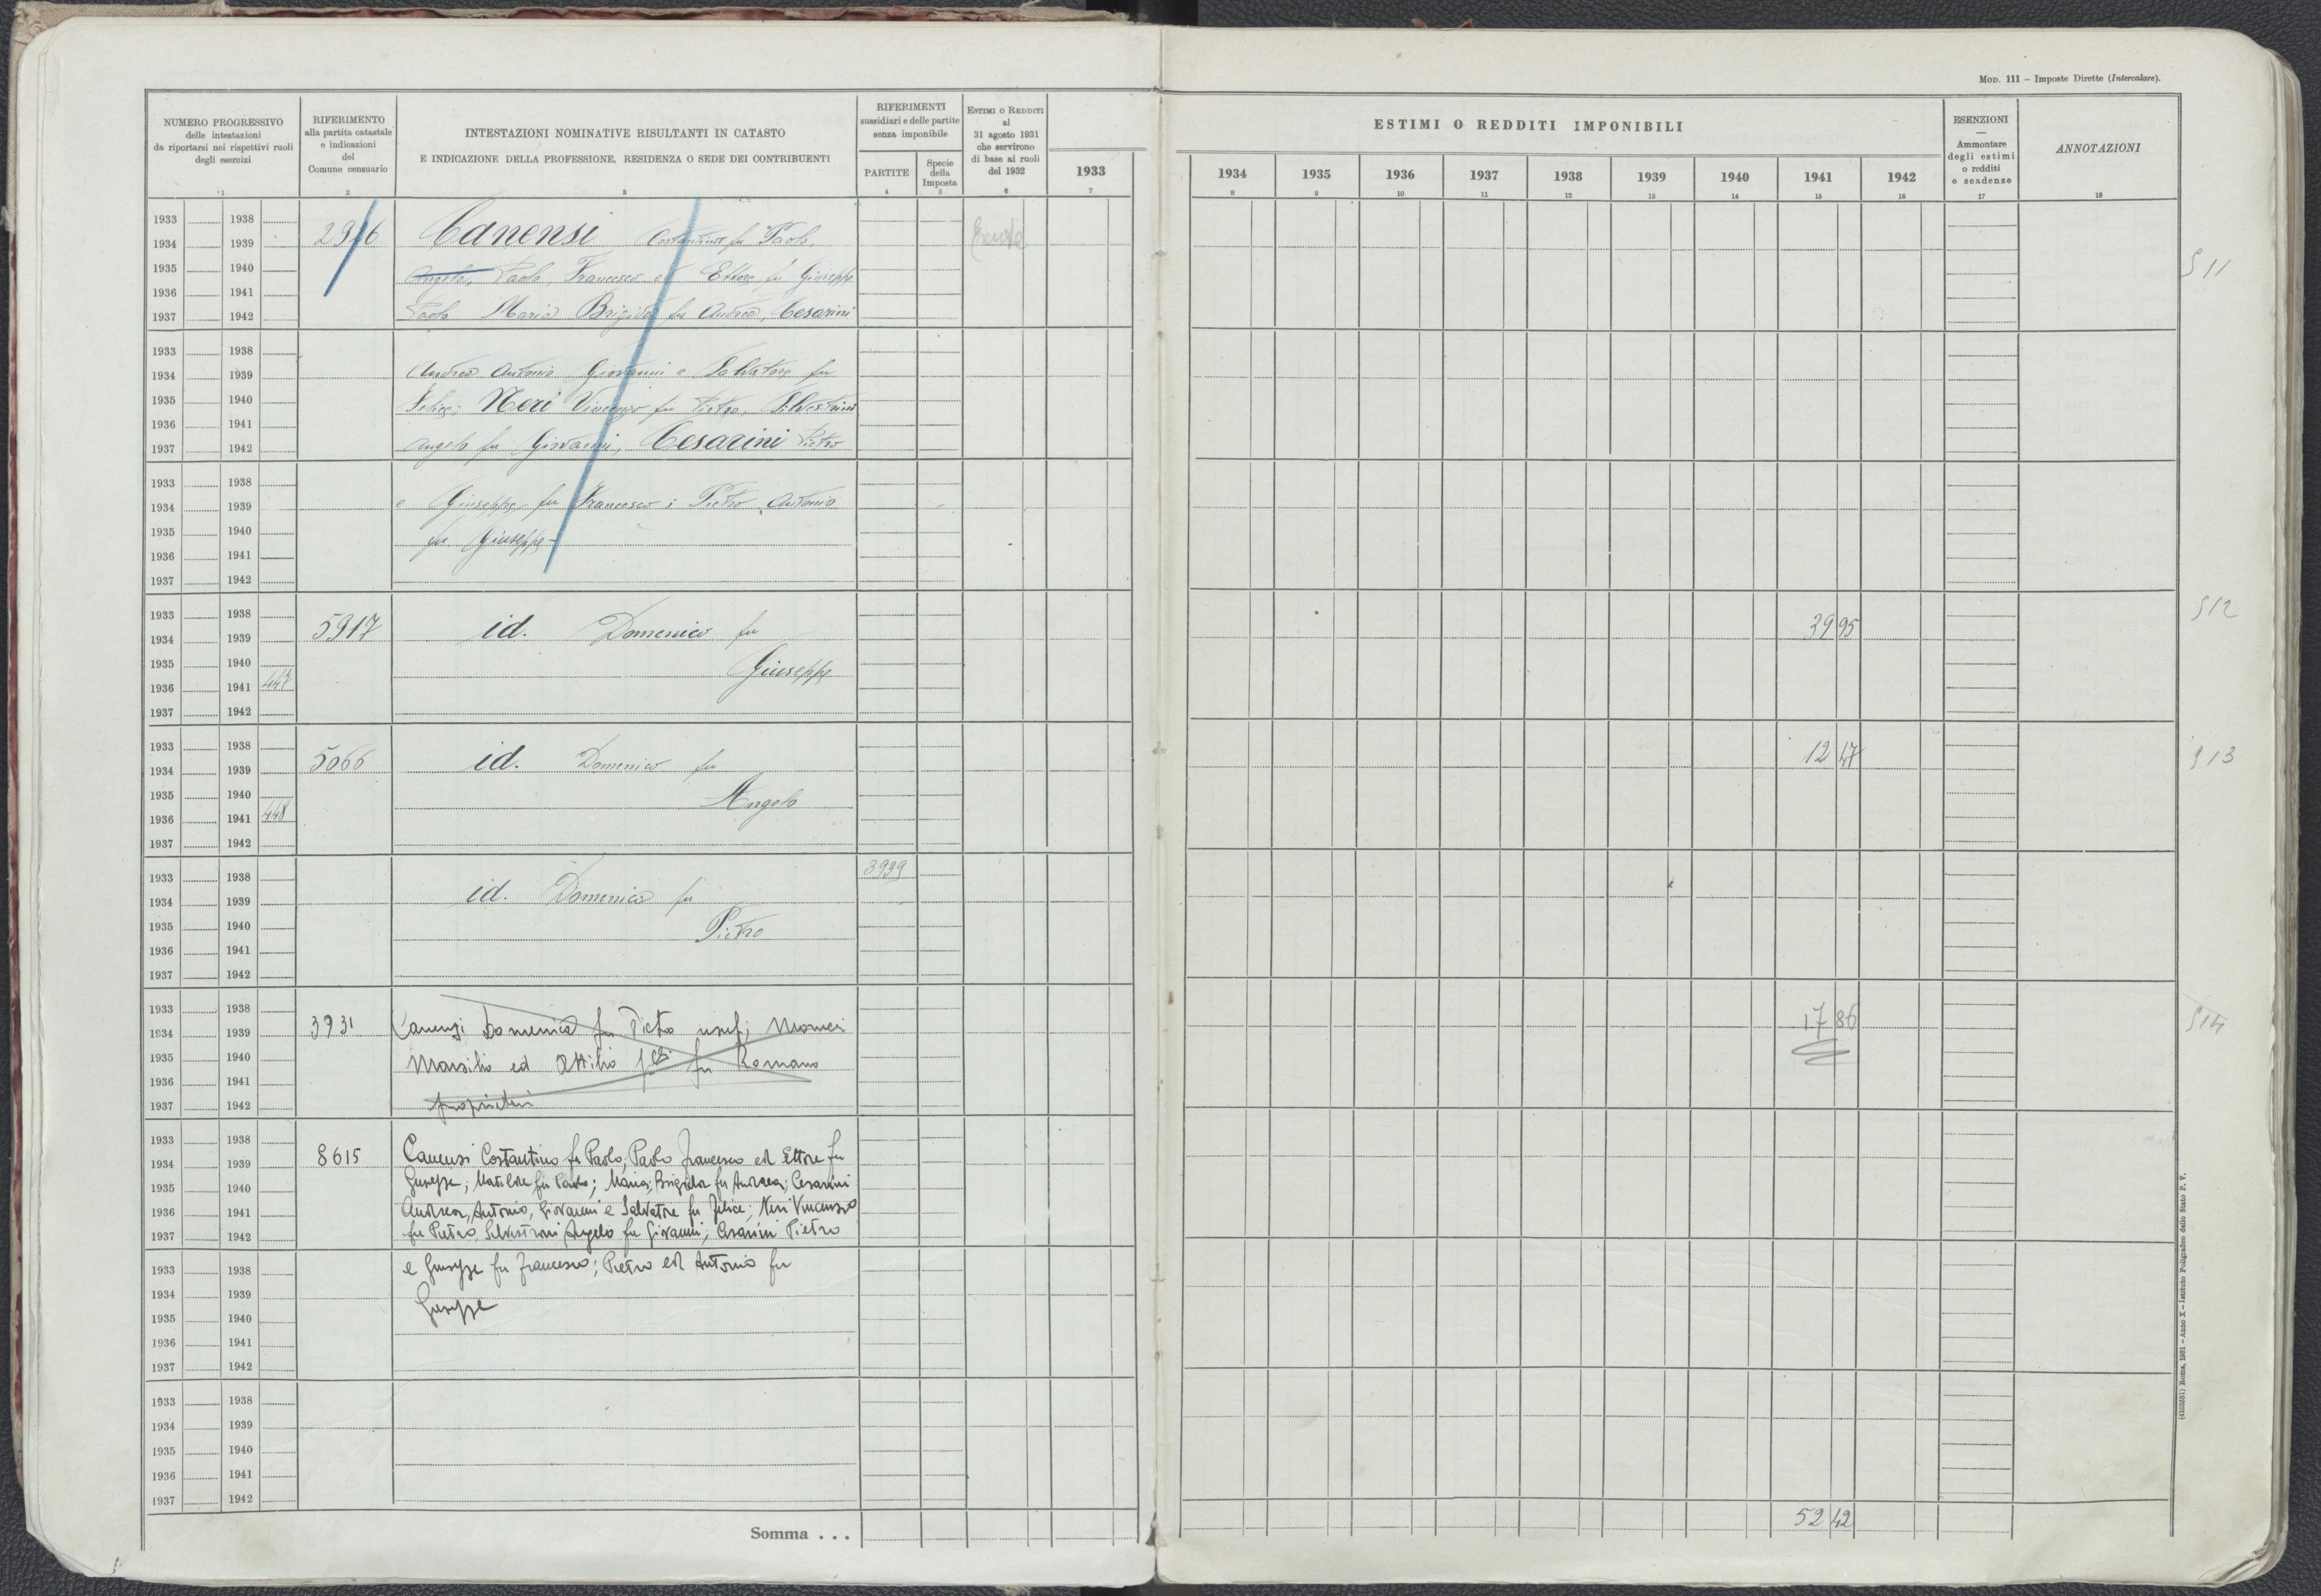 MOD. 111 – Imposte Dirette (Intercalare).
NUMERO PROGRESSIVO
delle intestazioni
da riportarsi nei rispettivi ruoli
degli esercizi
1
RIFERIMENTO
alla partita catastale
e indicazioni
del
Comune censuario
2
INTESTAZIONI NOMINATIVE RISULTANTI IN CATASTO
E INDICAZIONE DELLA PROFESSIONE, RESIDENZA O SEDE DEI CONTRIBUENTI
3
RIFERIMENTI
sussidiari e delle partite
senza imponibile
PARTITE
4
Specie
della
Imposta
5
ESTIMI O REDDITI
al
31 agosto 1931
che servirono
di base ai ruoli
del 1932
6
1933
7
ESTIMI O REDDITI IMPONIBILI
1934 1935 1936 1937 1938 1939 1940 1941 1942
8 9 10 11 12 13 14 15 16
ESENZIONI
—
Ammontare
degli estimi
o redditi
e scadenze
17
ANNOTAZIONI
18
1933 1938
1934 1939 Canensi Costantino fu Paolo,
1935 1940 Angelo, Paolo, Francesco ed Ettore fu Giuseppe 511
1936 1941
1937 1942 Paolo Maria Brigida fu Andrea, Cesarini
1933 1938
1934 1939 Andrea Antonio Giovanni e Salvatore fu
1935 1940 Felice; Neri Vincenzo fu Pietro, Silvestrini
1936 1941
1937 1942 Angelo fu Giovanni, Cesarini Pietro
1933 1938
1934 1939 e Giuseppe fu Francesco; Pietro Antonio
1935 1940 fu Giuseppe –
1936 1941
1937 1942
1933 1938
1934 1939 5917 id. Domenico fu 39 95 512
1935 1940 Giuseppe
1936 1941 447
1937 1942
1933 1938
1934 1939 5066 id. Domenico fu 12 47 513
1935 1940 Angelo
1936 1941 448
1937 1942
1933 1938 3939
1934 1939 id. Domenico fu
1935 1940 Pietro
1936 1941
1937 1942
1933 1938
1934 1939 3931 Canensi Domenico fu Pietro usuf; 17 86 514
1935 1940 Marsilio ed Attilio fu Romano
1936 1941
1937 1942 proprietari
1933 1938 Canensi Costantino fu Paolo; Paolo Francesco ed Ettore fu
1934 1939 8615
1935 1940 Giuseppe; Matilde fu Paolo; Maria, Brigida fu Andrea; Cesarini
1936 1941 Andrea, Antonio, Giovanni e Salvatore fu Felice; Neri Vincenzo
1937 1942 fu Pietro, Silvestrini Angelo fu Giovanni; Cesarini Pietro
1933 1938 e Giuseppe fu Francesco; Pietro ed Antonio fu
1934 1939 Giuseppe
1935 1940
1936 1941
1937 1942
1933 1938
1934 1939
1935 1940
1936 1941
1937 1942
Somma . . . 52 42
(4103531) Roma, 1931 – Anno X – Istituto Poligrafico dello Stato P. V.